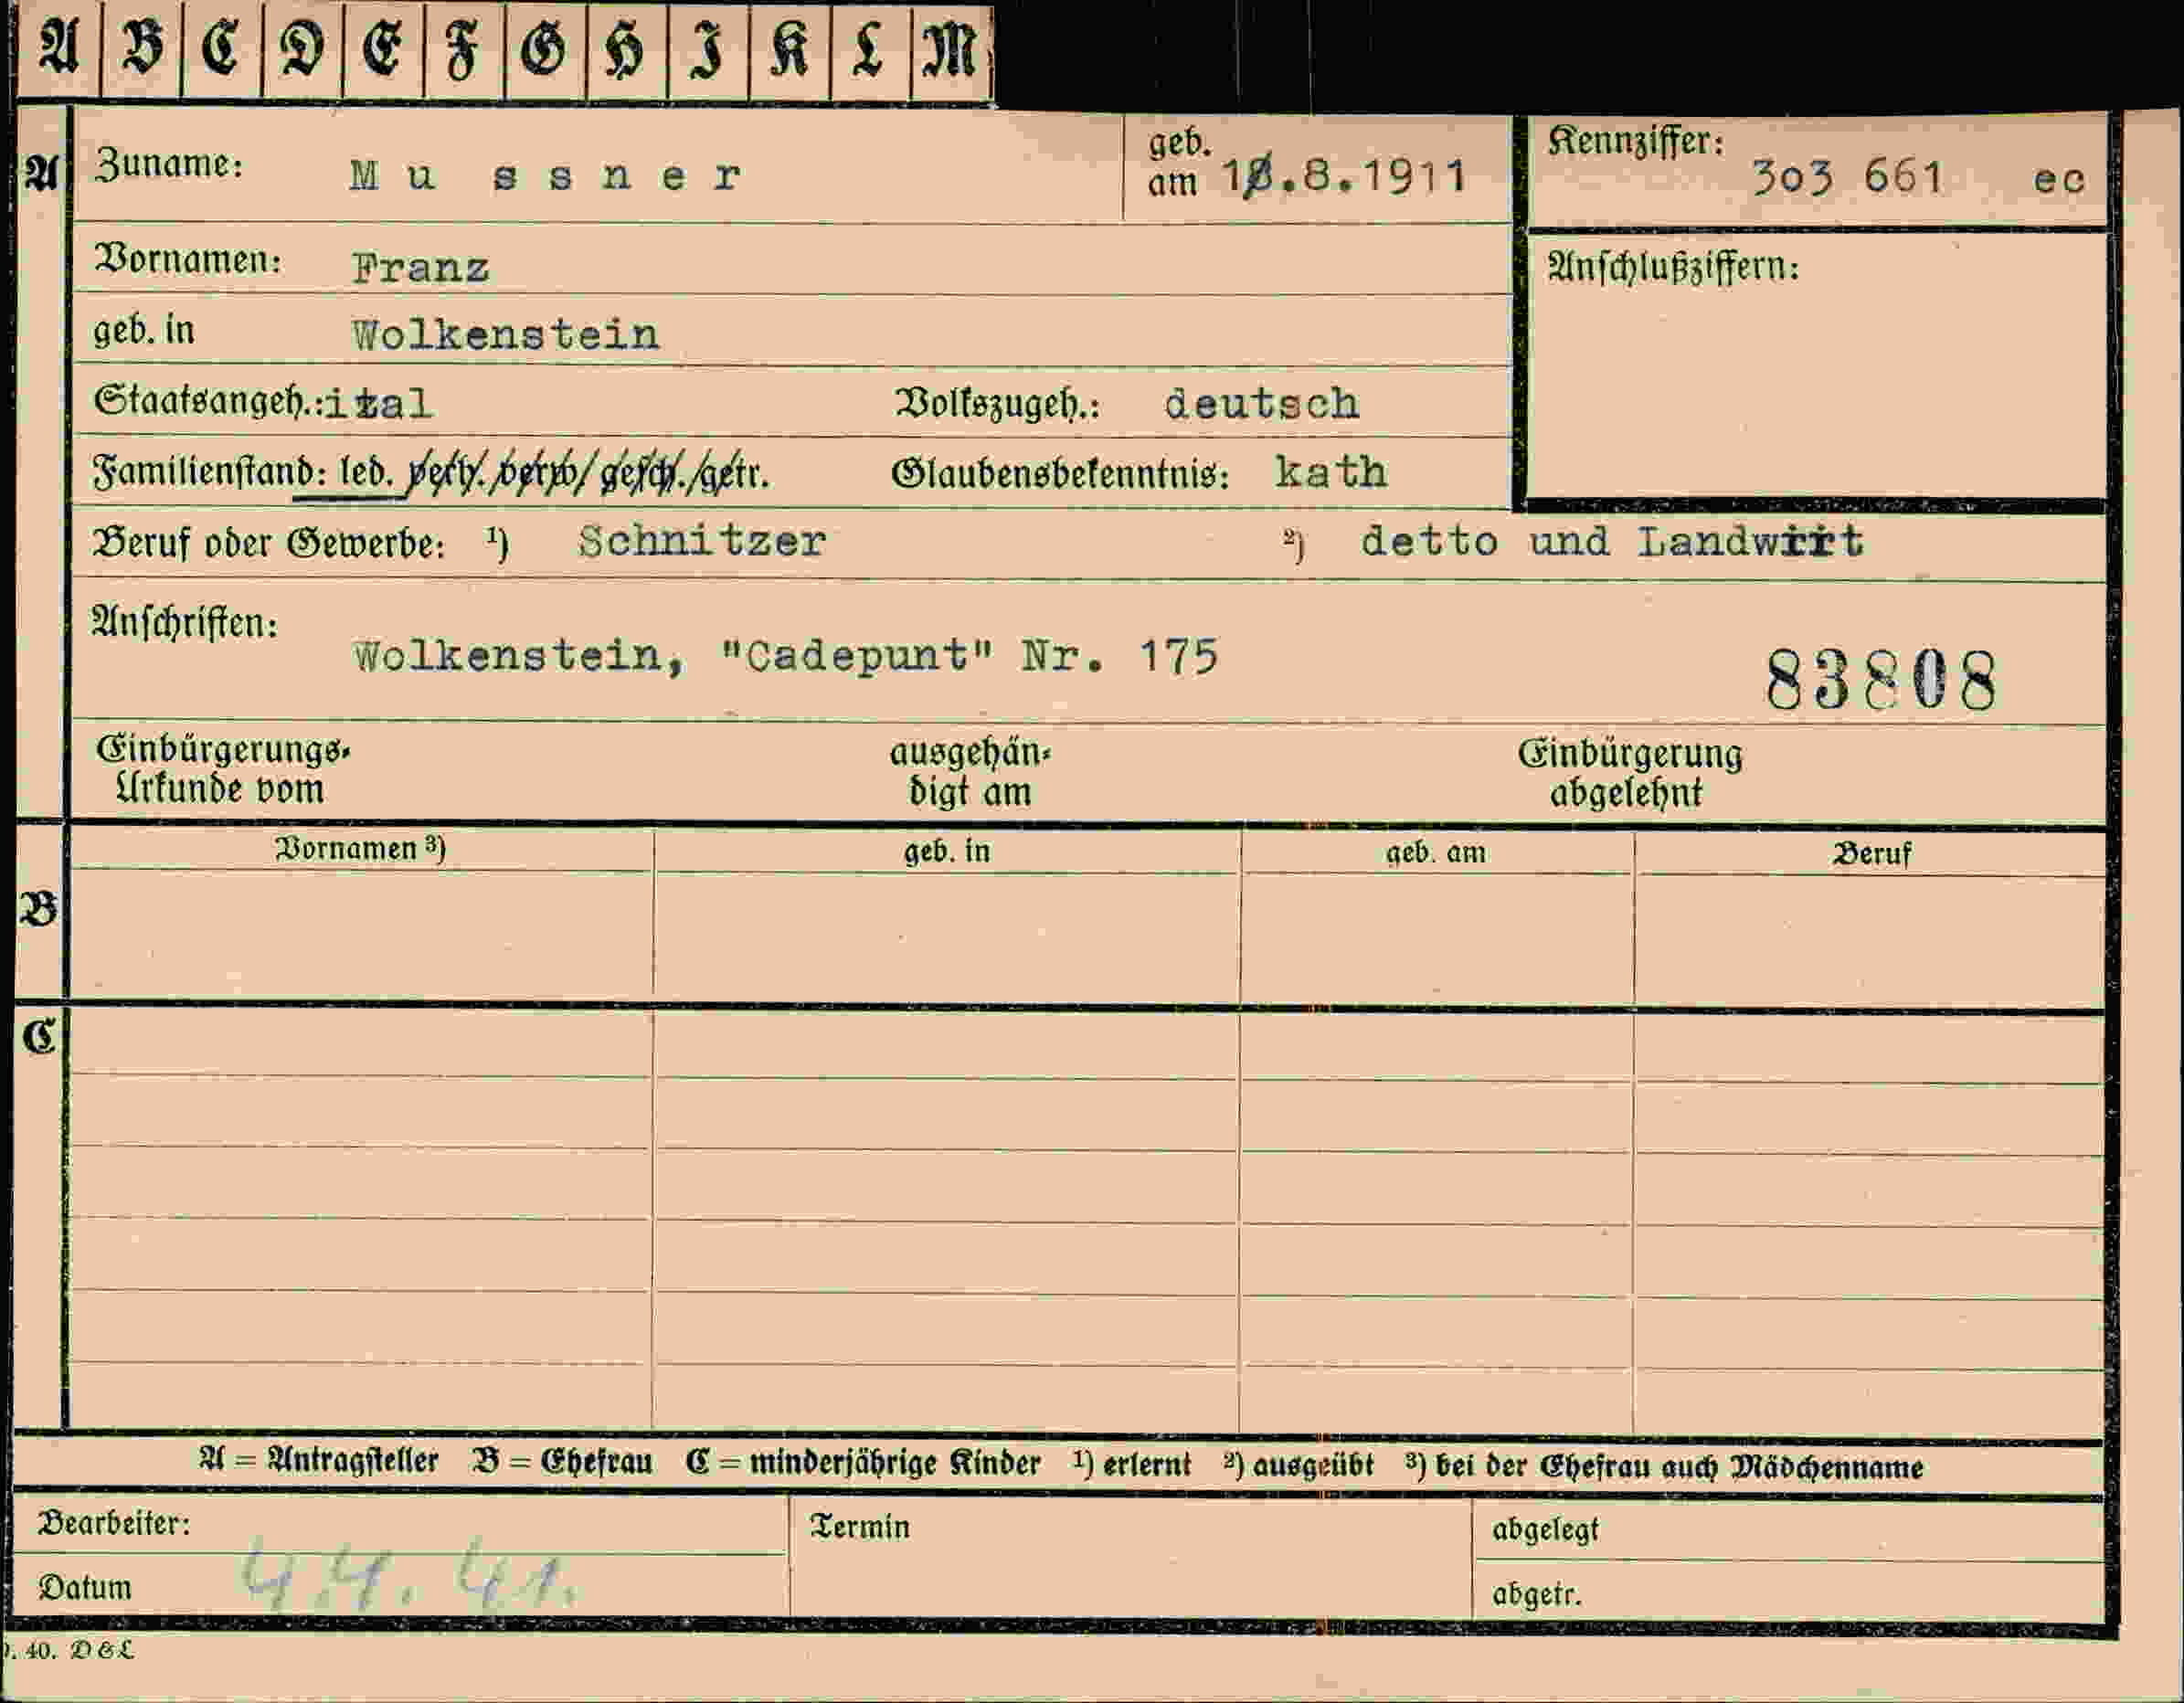 A B C D E F G H I K L M
A Zuname: Mussner geb. am 1 .8.1911 Kennziffer: 303 661 ec
Vornamen: Franz Anschlußziffern:
geb. in Wolkenstein
Staatsangeh.: ital Volkszugeh.: deutsch
Familienstand: led. verh. verw. gesch. getr. Glaubensbekenntnis: kath
Beruf oder Gewerbe: ¹) Schnitzer ²) detto und Landwirt
Anschriften:
Wolkenstein, "Cadepunt" Nr. 175 83808
Einbürgerungs- ausgehän- Einbürgerung
Urkunde vom digt am abgelehnt
Vornamen ³) geb. in geb. am Beruf
B
C
A = Antragsteller B = Ehefrau C = minderjährige Kinder ¹) erlernt ²) ausgeübt ³) bei der Ehefrau auch Mädchenname
Bearbeiter: Termin abgelegt
Datum 4.4. 41. abgetr.
40. D&L